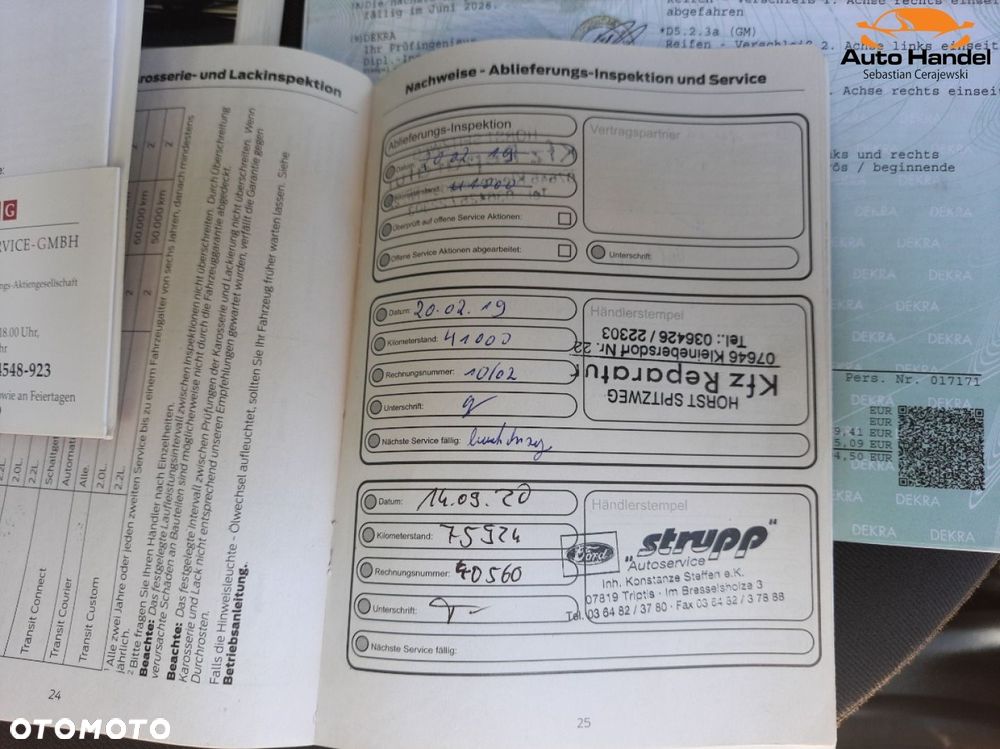 fällig im Juni 2026.
DEKRA
Ihr Prüfingenieur
abgefahren
*D5.2.3a (GM)
Auto Handel
Sebastian Cerajewski
. Achse rechts einseit
ks und rechts
/ beginnende
Pers. Nr. 017171
EUR
EUR
9.41 EUR
5.09 EUR
4,50 EUR
DEKRA DEKRA
DEKRA DEKRA
G
RVICE-GMBH
ngs-Aktiengesellschaft
18.00 Uhr,
4548-923
owie an Feiertagen
rosserie- und Lackinspektion
60.000 km 2 2
50.000 km 2 2
2.2L
2.0L
2.2L
Schaltget
Automati
Alle.
2.0L
2.2L
Transit Connect
Transit Courier
Transit Custom
¹ Alle zwei Jahre oder jeden zweiten Service bis zu einem Fahrzeugalter von sechs Jahren, danach mindestens
jährlich.
² Bitte fragen Sie Ihren Händler nach Einzelheiten.
Beachte: Das festgelegte Laufleistungsintervall zwischen Inspektionen nicht überschreiten. Durch Überschreitung
verursachte Schäden an Bauteilen sind möglicherweise nicht durch die Fahrzeuggarantie abgedeckt.
Beachte: Das festgelegte Intervall zwischen Prüfungen der Karosserie und Lackierung nicht überschreiten. Wenn
Karosserie und Lack nicht entsprechend unseren Empfehlungen gewartet wurden, verfällt die Garantie gegen
Durchrosten.
Falls die Hinweisleuchte - Ölwechsel aufleuchtet, sollten Sie Ihr Fahrzeug früher warten lassen. Siehe
Betriebsanleitung.
24
Nachweise - Ablieferungs-Inspektion und Service
Ablieferungs-Inspektion
Vertragspartner
Datum: 20.02.19
Kilometerstand: 41000
Überprüft auf offene Service Aktionen:
Offene Service Aktionen abgearbeitet:
Unterschrift:
Datum: 20.02.19
Händlerstempel
Kilometerstand: 41000
Rechnungsnummer: 10/02
Unterschrift:
Nächste Service fällig:
HORST SPITZWEG
Kfz Reparatur
07646 Kleinebersdorf Nr. 22
Tel.: 036426 / 22303
Datum: 14.09.20
Händlerstempel
Kilometerstand: 75924
Rechnungsnummer: 40560
Unterschrift:
Nächste Service fällig:
Ford
"strupp"
"Autoservice
Inh. Konstanze Steffen e.K.
07819 Triptis · Im Bresselsholze 3
Tel. 03 64 82 / 37 80 · Fax 03 64 82 / 3 78 88
25
OTOMOTO